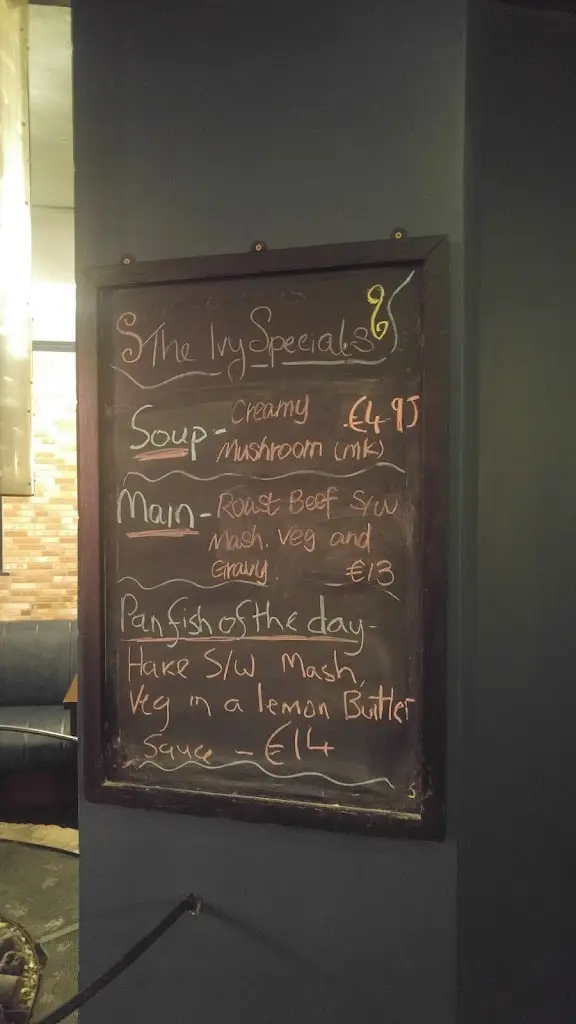 The Ivy Specials
Soup - Creamy €4.95
Mushroom (mk)
Main - Roast Beef S/W
Mash, Veg and
Gravy €13
Pan fish of the day -
Hake S/W Mash,
Veg in a lemon Butter
Sauce - €14